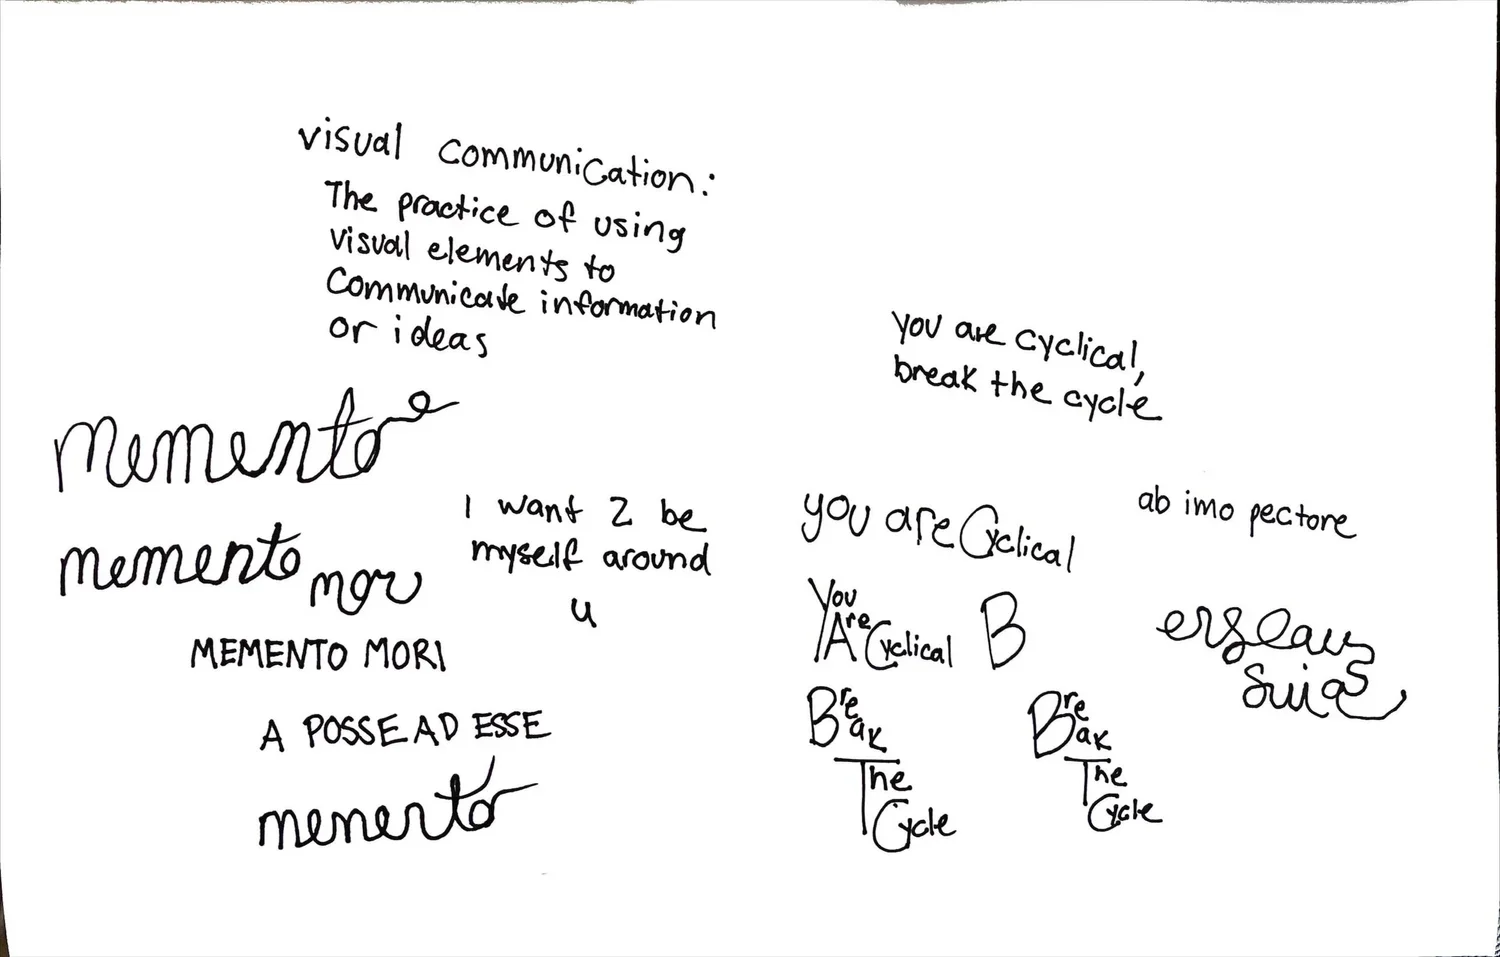 visual communication:
The practice of using
visual elements to
Communicate information
or ideas
memento
memento mori
MEMENTO MORI
A POSSE AD ESSE
memento
I want 2 be
myself around
u
you are cyclical,
break the cycle
you are Cyclical
You
Are
Cyclical
B
Break
The
Cycle
Break
The
Cycle
ab imo pectore